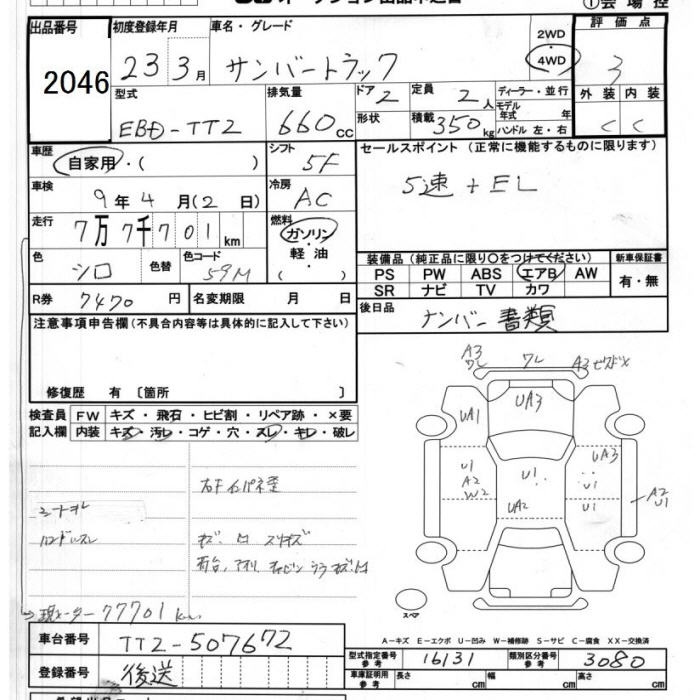 出品番号 初度登録年月 車名・グレード 2WD 評価点
2046 23 3月 サンバートラック 4WD 3
型式 排気量 ドア 2 定員 2人 ディーラー・並行 外装 内装
EBD-TT2 660cc 形状 積載 350kg モデル年式 年 ハンドル 左・右 C C
車歴 自家用・( ) シフト 5F セールスポイント (正常に機能するものに限ります)
車検 9年 4月(2日) 冷房 AC 5速 + EL
走行 7万7千701km 燃料 ガソリン・軽油・( )
色 シロ 色替 色コード 59M
装備品 (純正品に限り○をつけてください) 新車保証書
PS PW ABS エアB AW 有・無
SR ナビ TV カワ
R券 7470円 名変期限 月 日
後日品 ナンバー 書類
注意事項申告欄 (不具合内容等は具体的に記入して下さい)
修復歴 有 〔箇所 〕
検査員 FW キズ・飛石・ヒビ割・リペア跡・×要
記入欄 内装 キズ・汚レ・コゲ・穴・スレ・キレ・破レ
A3 ワレ ワレ A3
UA1 UA3
U1 A2 W2 U1 UA3 U1
UA2 A2 U1
シートヨレ
ハンドルスレ
現メーター 77701 km
スペア
A-キズ E-エクボ U-凹み W-補修跡 S-サビ C-腐食 XX-交換済
車台番号 TT2-507672
登録番号 後送
型式指定番号 参考 16131 類別区分番号 参考 3080
車庫証明用 参考 長さ cm 幅 cm 高さ cm